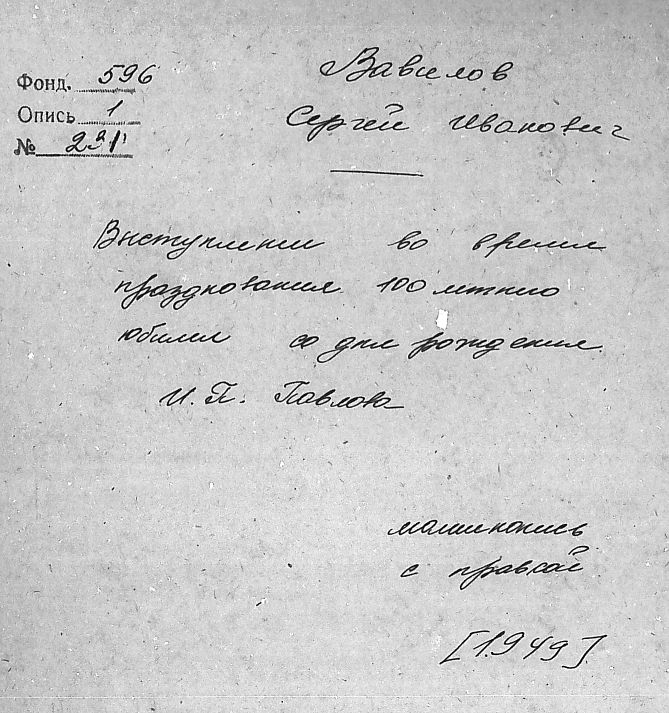 Фонд. 596
Опись 1
№ 231
Вавилов
Сергей Иванович
Выступление во время
празднования 100 летнего
юбилея со дня рождения
И. П. Павлова
машинопись
с правкой
[1949].